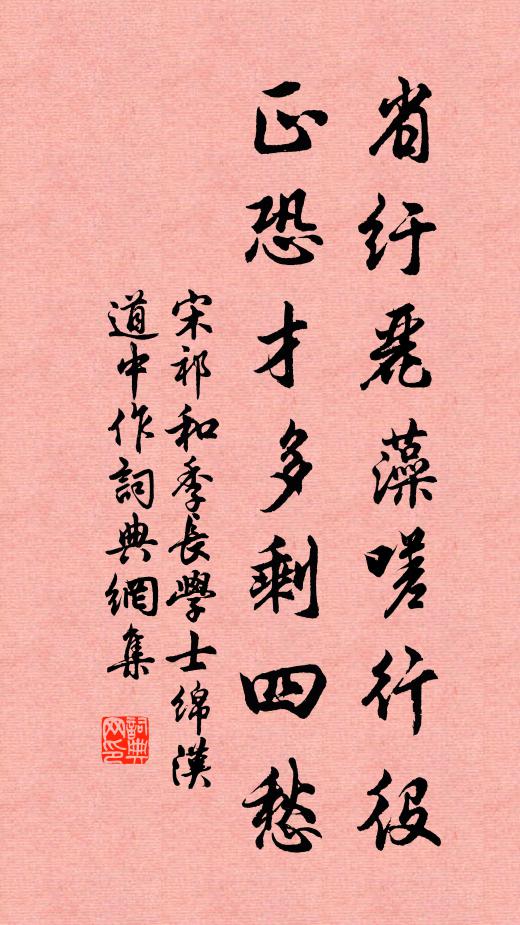 省紆麗藻嗟行役
正恐才多剩四愁
宋祁和季長學士綿漢
道中作詞典網集
詞典
网印